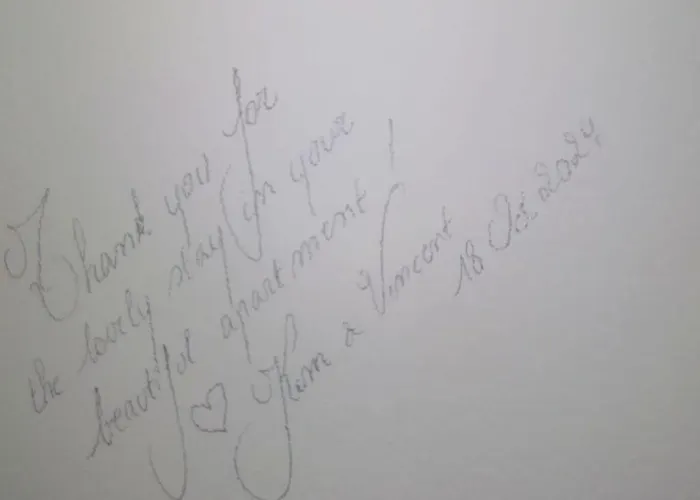 Thank you for
the lovely stay in your
beautiful apartment!
♡ Kim & Vincent
18 Oct. 2024